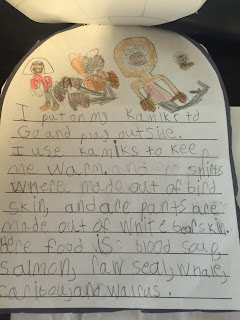 I put on my kamiks to
Go and play outside.
I use kamiks to keep
me warm. shirts
where made out of bird
skin, and are pants are
made out of white bear skin.
Here food is blood soup,
salmon, raw seal, whale,
caribou, and walrus.